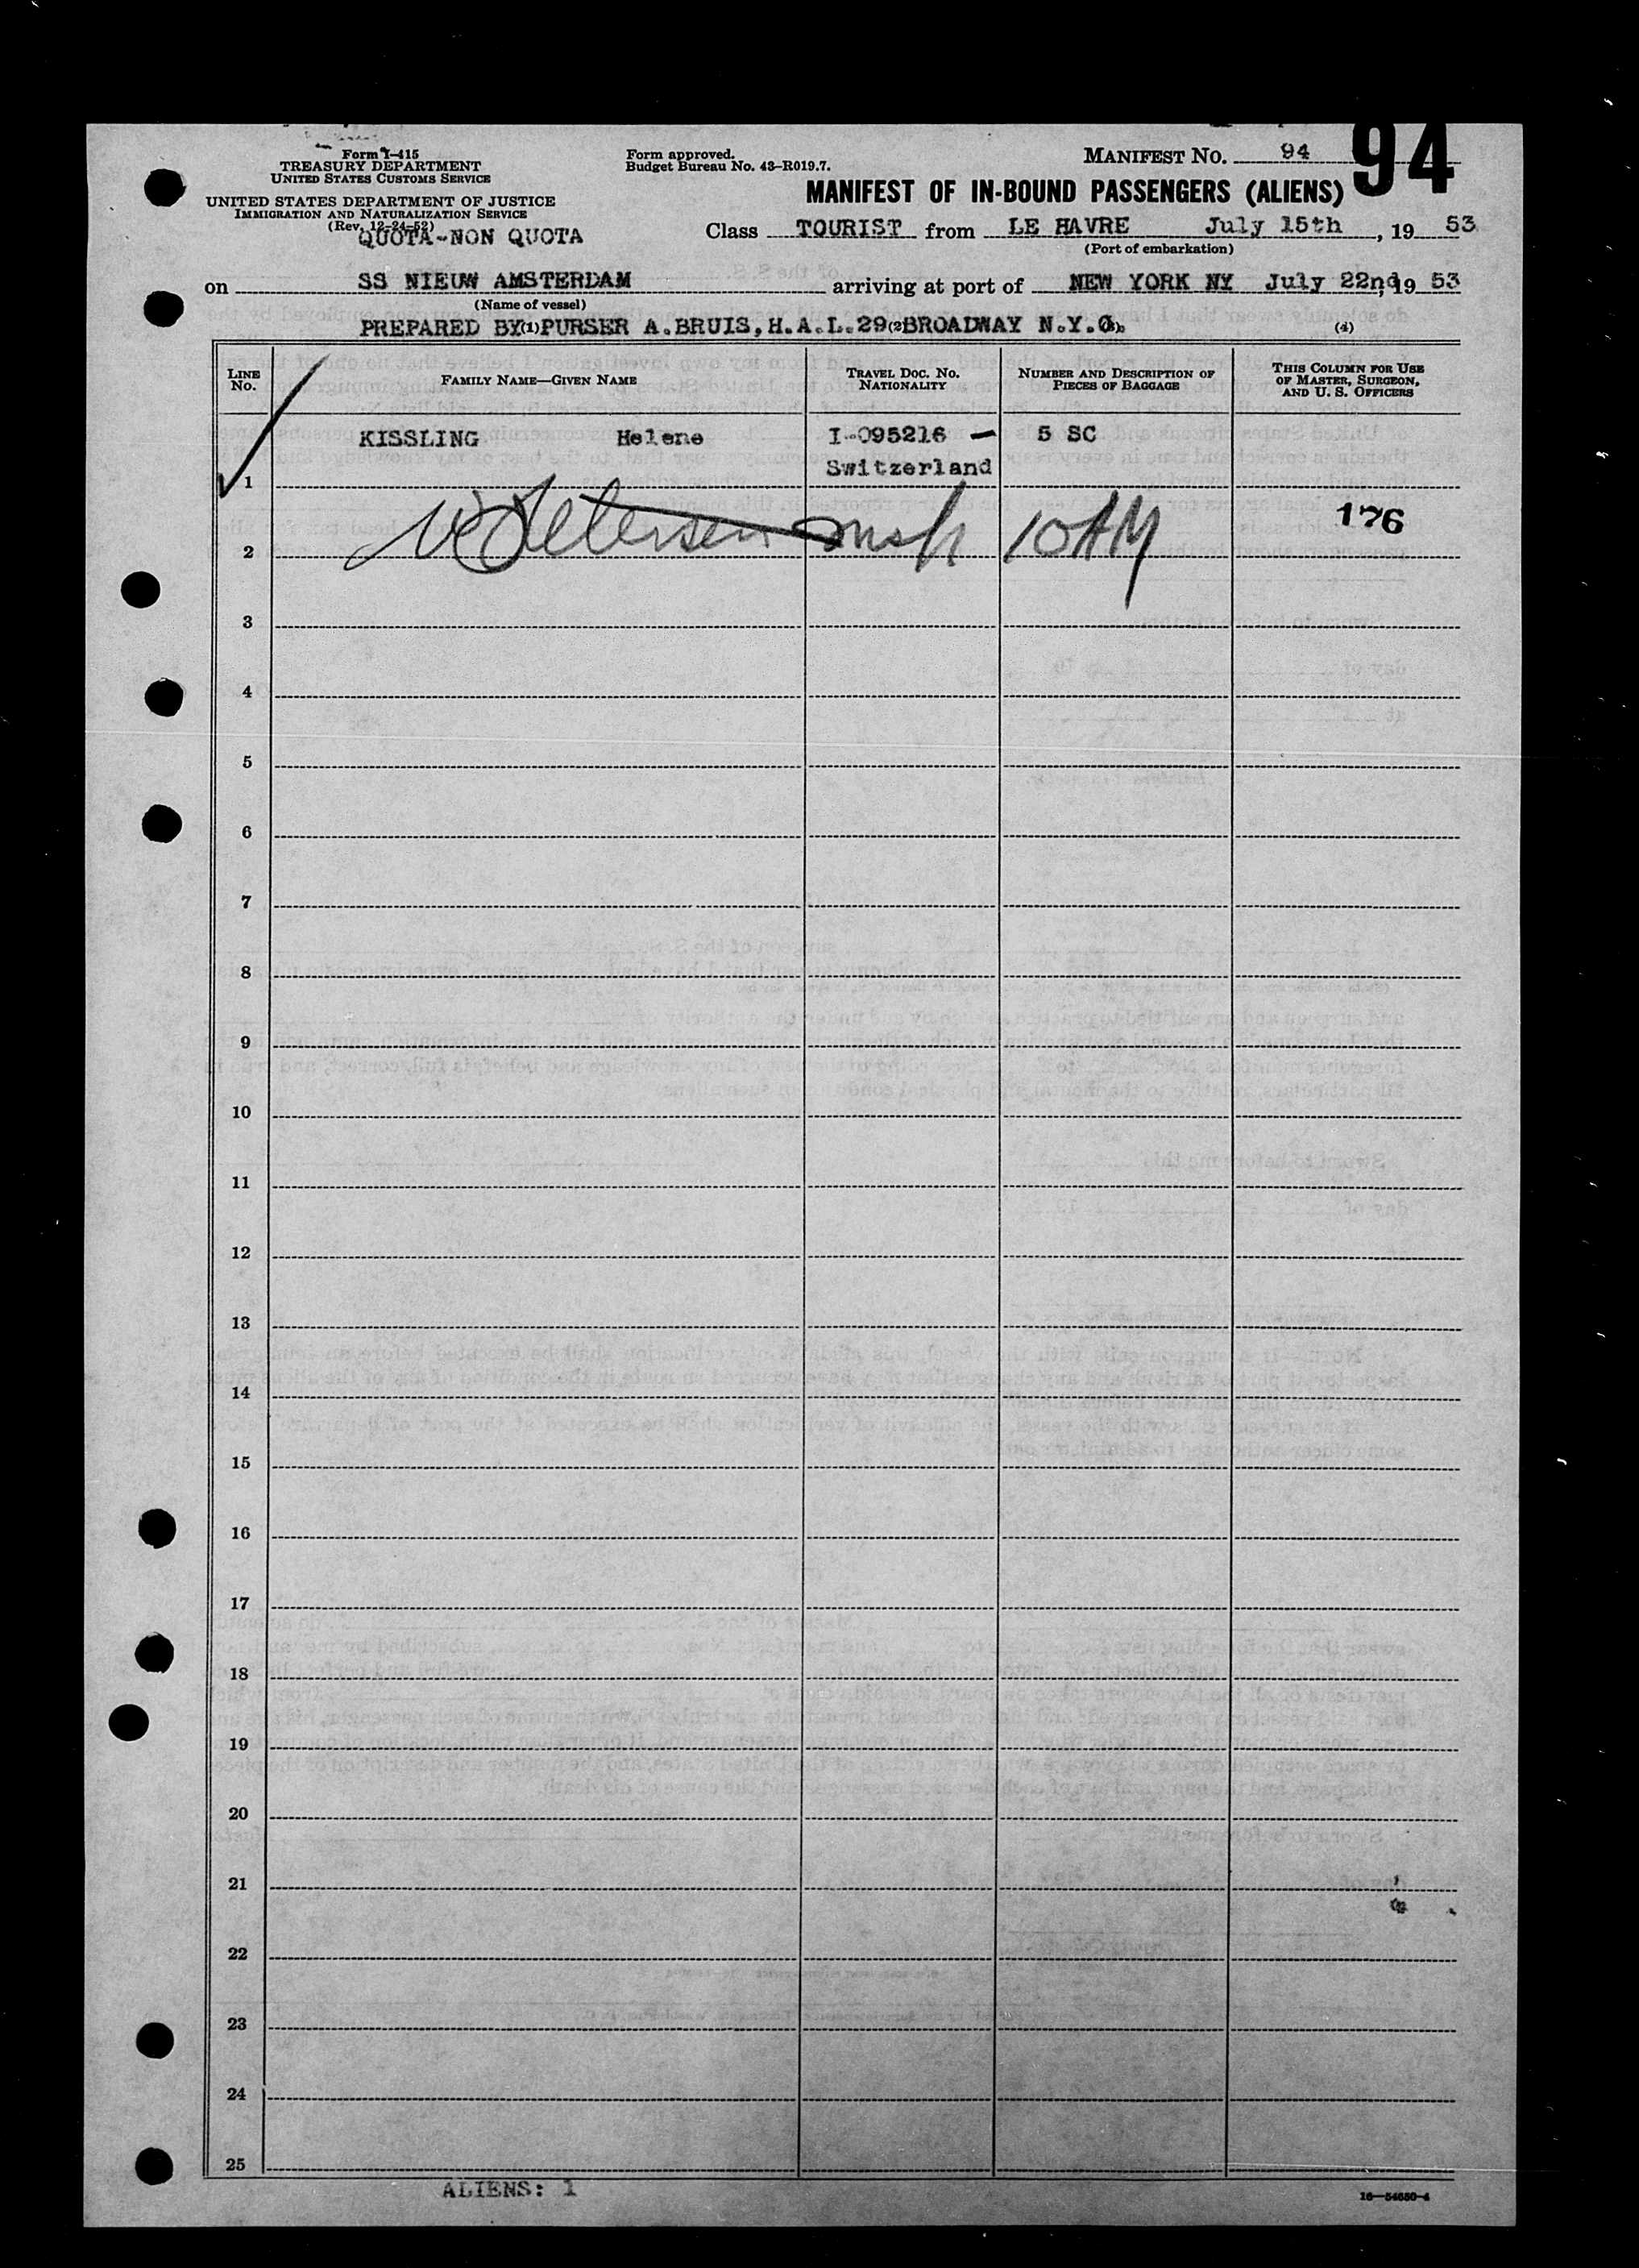 94
Form I-415
TREASURY DEPARTMENT
UNITED STATES CUSTOMS SERVICE
UNITED STATES DEPARTMENT OF JUSTICE
IMMIGRATION AND NATURALIZATION SERVICE
(Rev. 12-24-52)
QUOTA-NON QUOTA
Form approved.
Budget Bureau No. 43-R019.7.
MANIFEST NO. 94
MANIFEST OF IN-BOUND PASSENGERS (ALIENS)
Class TOURIST from LE HAVRE July 15th, 19 53
(Port of embarkation)
on SS NIEUW AMSTERDAM arriving at port of NEW YORK NY July 22nd, 19 53
(Name of vessel)
PREPARED BY (1) PURSER A.BRUIS, H.A.L. 29 (2) BROADWAY N.Y. (4)
LINE NO. FAMILY NAME—GIVEN NAME TRAVEL DOC. NO. NATIONALITY NUMBER AND DESCRIPTION OF PIECES OF BAGGAGE THIS COLUMN FOR USE OF MASTER, SURGEON, AND U. S. OFFICERS
KISSLING Helene I-095216 — 5 SC
1 Switzerland
10 AM 176
2
3
4
5
6
7
8
9
10
11
12
13
14
15
16
17
18
19
20
21
22
23
24
25
ALIENS: 1
16—54650-4